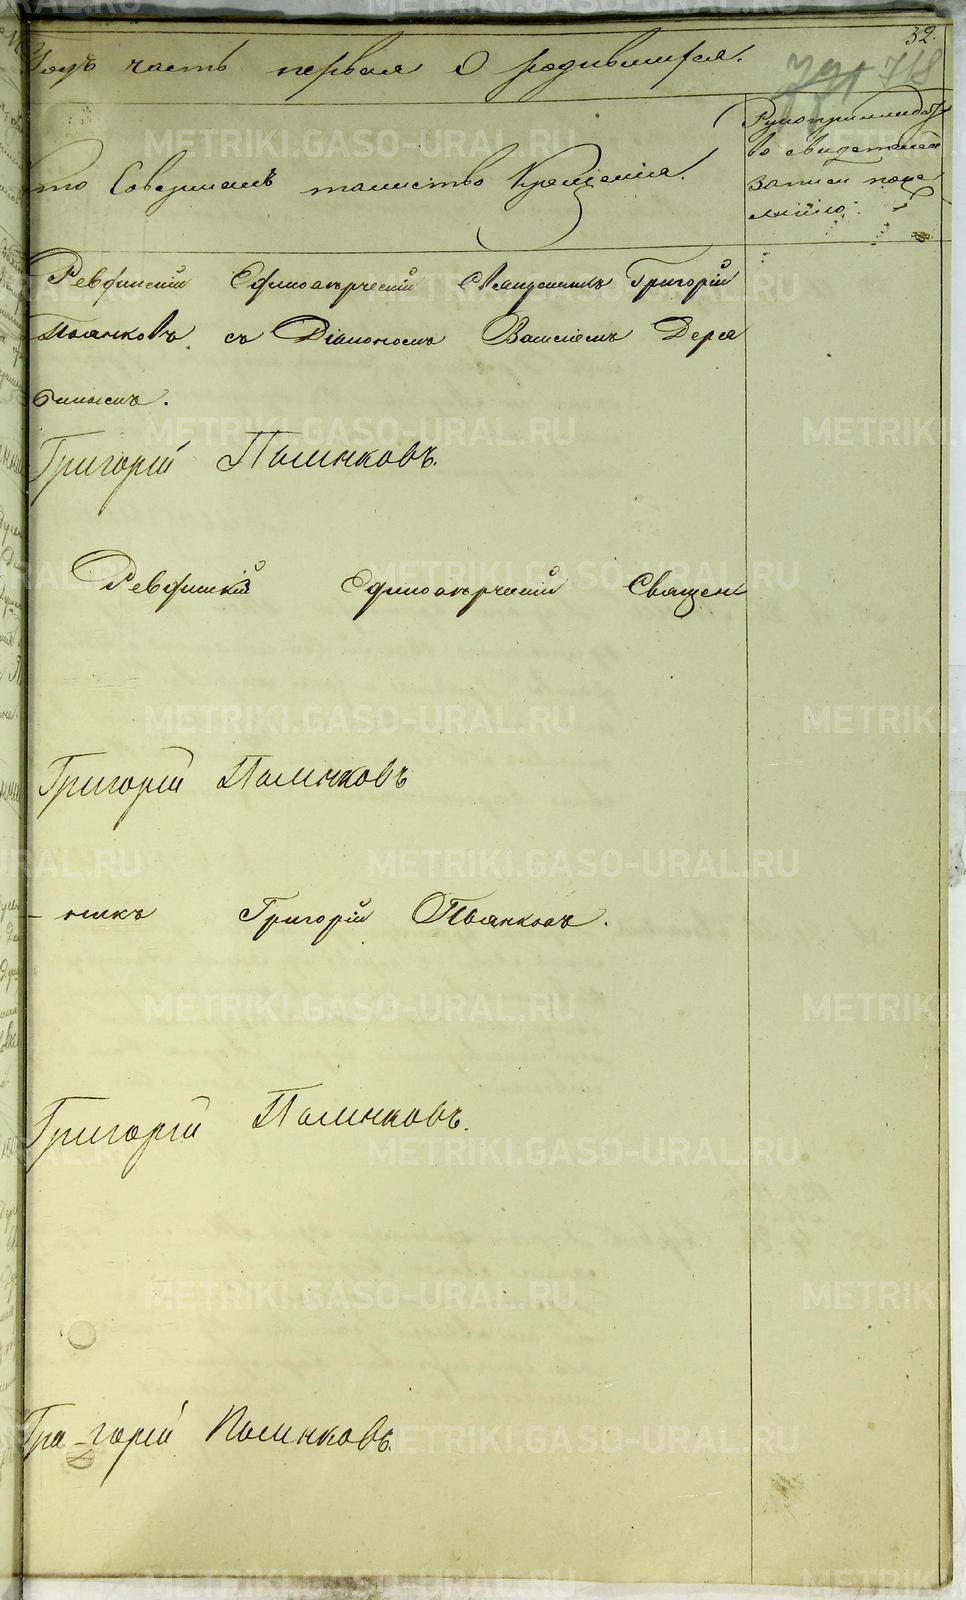 32.
Годъ часть первая О родившихся.
718
Кто Совершалъ таинство Крещенія.
Рукоприкладст
во свидетелей
записи поже
ланию.
Ревдинскій Единовѣрческій Священникъ Григорій
Пьянковъ съ Діакономъ Василіемъ Деря
биннымъ.
Григорій Пьянковъ.
Ревдинскій Единовѣрческій Священ
Григорій Пьянковъ
- никъ Григорій Пьянковъ.
Григорій Пьянковъ.
Григорій Пьянковъ.
METRIKI.GASO-URAL.RU